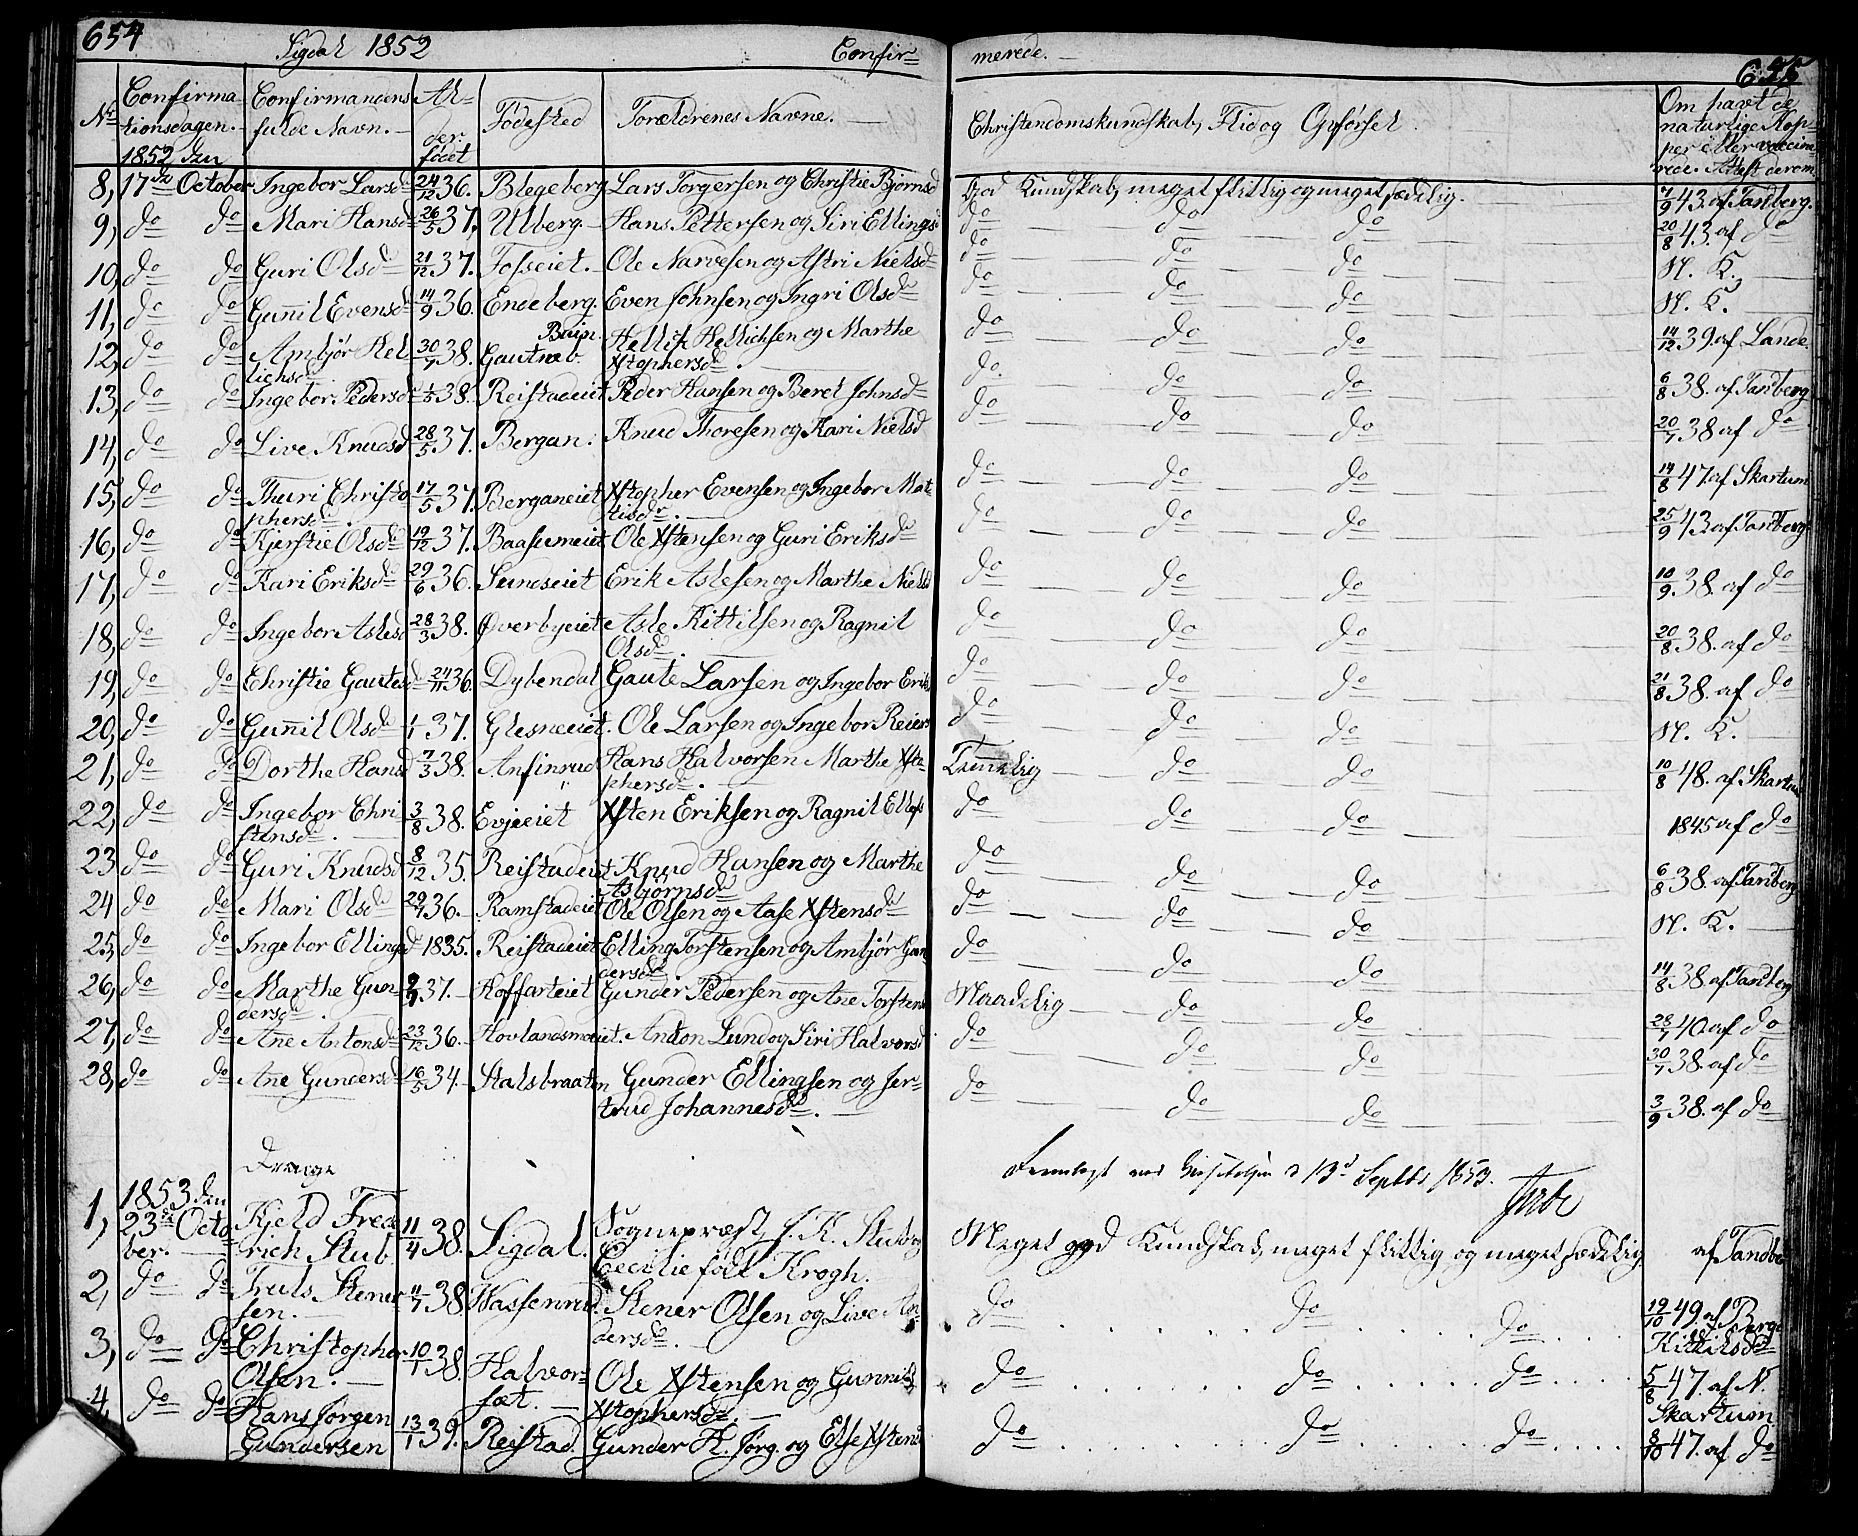 654
Sigdal 1852 Confir= merede. —
No Confirma= tionsdagen. — Confirmandens fulde Navn. — Al= der. födet Födested Forældrenes Navne. — Christendomskundskab, Flid og Opförsel. Om havt de naturlige Kop= per eller vaccine= rede. Attest derom
1852 den
8, 17de October Ingebor Larsd 24/12 36. Blegeberg Lars Torgersen og Christie Bjørnsd God Kundskab, meget flittig og meget sædelig. 7/9 43. af Tandberg.
9, do do Mari Hansd 26/5 37. Ulberg. Hans Pettersen og Siri Ellingsd do do do 20/8 43. af do
10, do do Guri Olsd 21/12 37. Fosseiet. Ole Narvesen og Astri Nielsd do do do N. K.
11, do do Gunnil Evensd 14/9 36. Endeberg. Even Johnsen og Ingri Olsd do do do N. K.
12, do do Ambjör Hel lichsd 30/7 38. Gautneb. Hellik Hellichsen og Marthe Xstophersd. do do do 14/12 39 af Lande
13, do do Ingebor Pedersd 1/5 38. Reistadeiet Peder Hansen og Beret Johnsd do. do do 6/8 38. af Tandberg
14, do do Live Knudsd 28/5 37. Bergan. Knud Thoresen og Kari Nielsd do do do 20/7 38 af do
15, do do Thuri Christo phersd. 17/5 37. Berganeiet Xstopher Evensen og Ingebor Mat tisdr. do do do 14/8 47. af Skartum
16, do do Kjerstie Olsd 19/12 37. Baasumeiet Ole Xstensen og Guri Eriksd do do do 25/9 43 af Tandberg
17, do do Kari Eriksd 29/6 36. Sundseiet Erik Aslesen og Marthe Nielsd do do do 10/9. 38. af do
18, do do Ingebor Aslesd 28/3 38. Øverbyeiet Asle Kittilsen og Ragnil Olsd. do do do 20/8 38. af do
19, do do Christie Gautesd 24/11 36. Dybendal Gaute Larsen og Ingebor Eriks do do do 21/8 38. af do
20, do do Gunnil Olsd 1/1 37. Glesneeiet. Ole Larsen og Ingebor Reiers do do do N. K.
21, do do Dorthe Hansd 7/3 38. Anfinrud Hans Halvorsen Marthe Xsto phersd. Temmelig do do 10/8 48. af Skartum
22, do do Ingebor Chri stensd. 3/8 38. Evjeeiet Xsten Eriksen og Ragnil Ellefs do do do 1845 af do
23 do do Guri Knudsd 8/12 35. Reistadeiet Knud Hansen og Marthe Asbjörnsd do do do 6/8 38. af Tandberg
24 do do Mari Olsd 29/7 36. Ramstadeiet Ole Olsen og Aase Xstensd do do do N. K.
25, do do Ingebor Ellingsd 1835. Reistadeiet Elling Torstensen og Ambjör Gun dersd do do do 14/8 38. af Tandberg
26, do do Marthe Gun= dersd. 37. Hoffarteiet Gunder Pedersen og Ane Torstens Maadelig do do 28/7 40. af do
27, do do Ane Antonsd 23/12 36. Hovlandsmoeiet. Anton Lund og Siri Halvorsd do do do 30/7 38. af do
28, do do Ane Gundersd 16/5 34. Stalsbraaten Gunder Ellingsen og Jer= trud Johannesd. do do do 3/9 38. af do
Drenge
1853 13de Septbr 1853.
1, 1853 den 23de Octo= ber. Kjeld Fred rich Stub. 11/4 38. Sigdal. Sognepræst Stub og Cecilie född Krogh. Meget god Kundskab, meget flittig og meget sædelig af Tandbe
2, do do Truls Stener sen. 11/7 38 Stener Olsen og Live An dersd. do do do 19/10 49. af Berge Kittilsd
3, do do Christopher Olsen. 10/1 38. Halvor= set. Ole Xstensen og Gunnil Xstophersd. do do do 5/8 47. af N. Skartum
4, do do Hans Jörgen Gundersen 13/1 39. Reistad. Gunder H. Jörg. og Else Xstensd do do do 8/10 47. af do